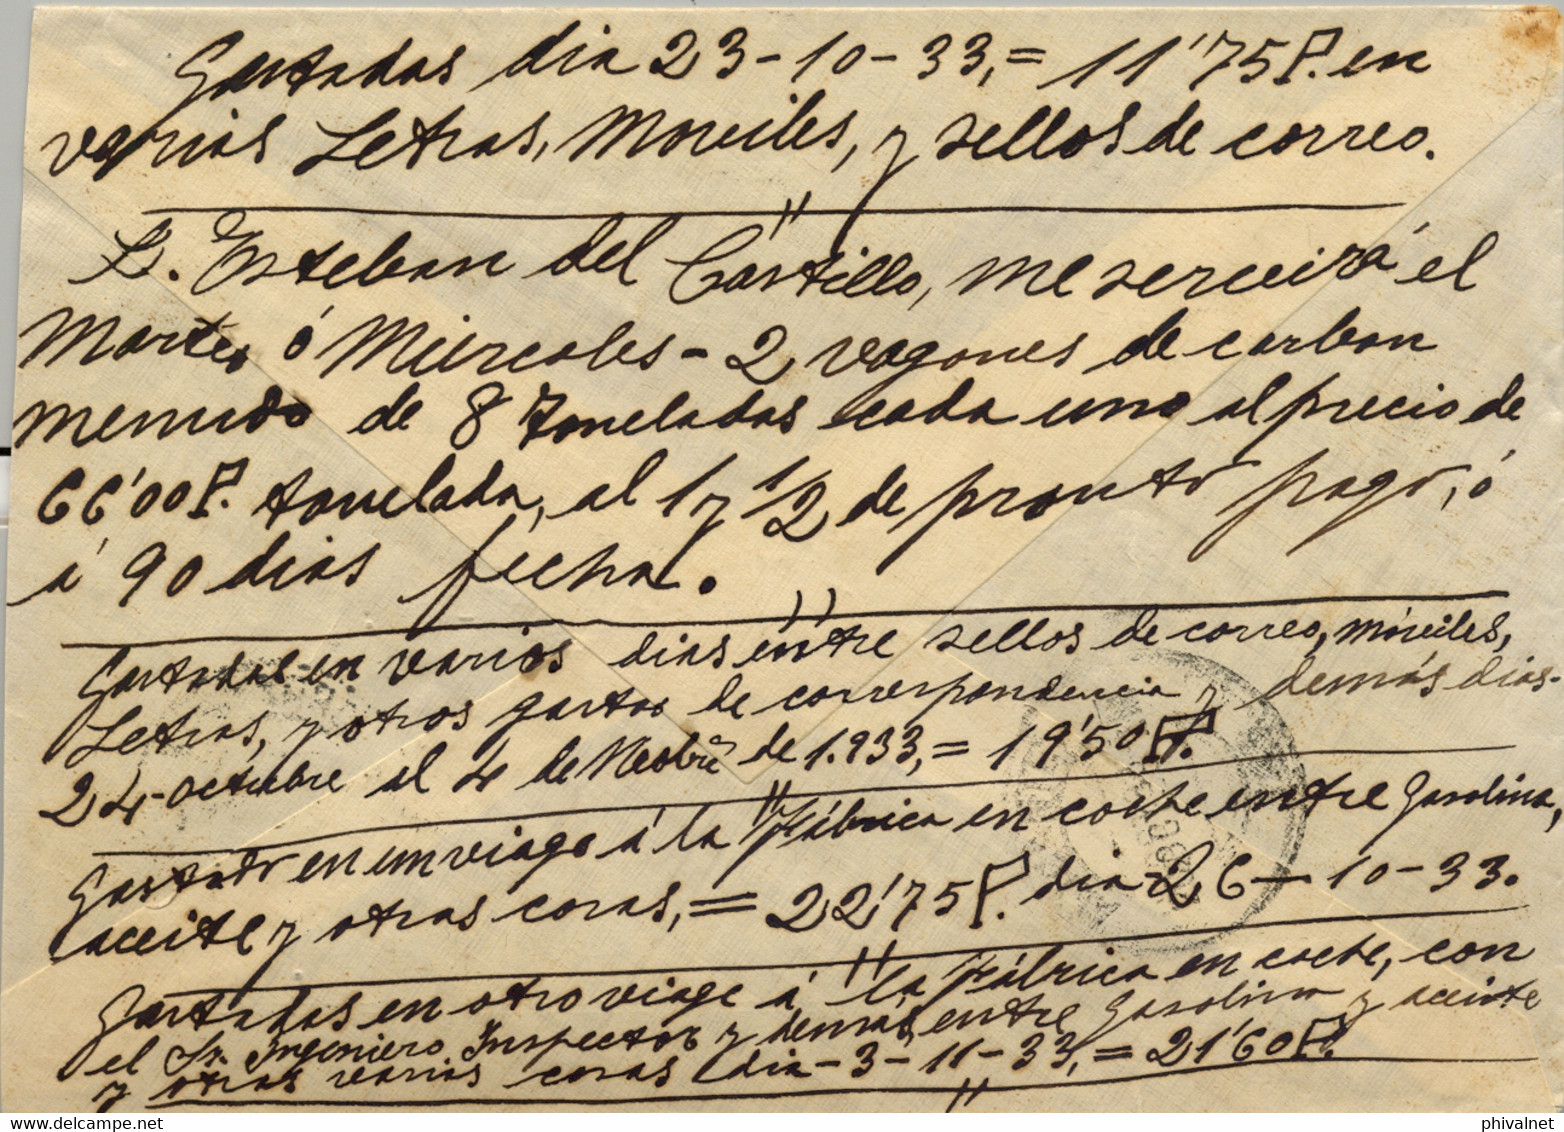 Gastadas dia 23-10-33,= 11'75 P. en
varias Letras, Moviles, y sellos de correo.
D. Esteban del Castillo, me servirá el
Martes ó Miercoles - 2 vagones de carbon
menudo de 8 toneladas cada uno al precio de
66'00 P. tonelada, al 1 y 1/2 de pronto pago, ó
á 90 dias fecha.
Gastadas en varios dias entre sellos de correo, móviles,
Letras, y otros gastos de correspondencia y demás dias-
24-octubre al 4 de Nvbre de 1.933,= 19'50 Pt.
Gastado en un viage á la Fábrica en coche entre Gasolina,
aceite y otras coras,= 22'75 P. dia-26-10-33.
Gastadas en otro viage á la Fábrica en coche, con
el Sr. Ingeniero Inspector y demas, entre Gasolina y aceite
y otras varias coras dia-3-11-33,= 21'60 Pt.
delcampe.net
phivalnet